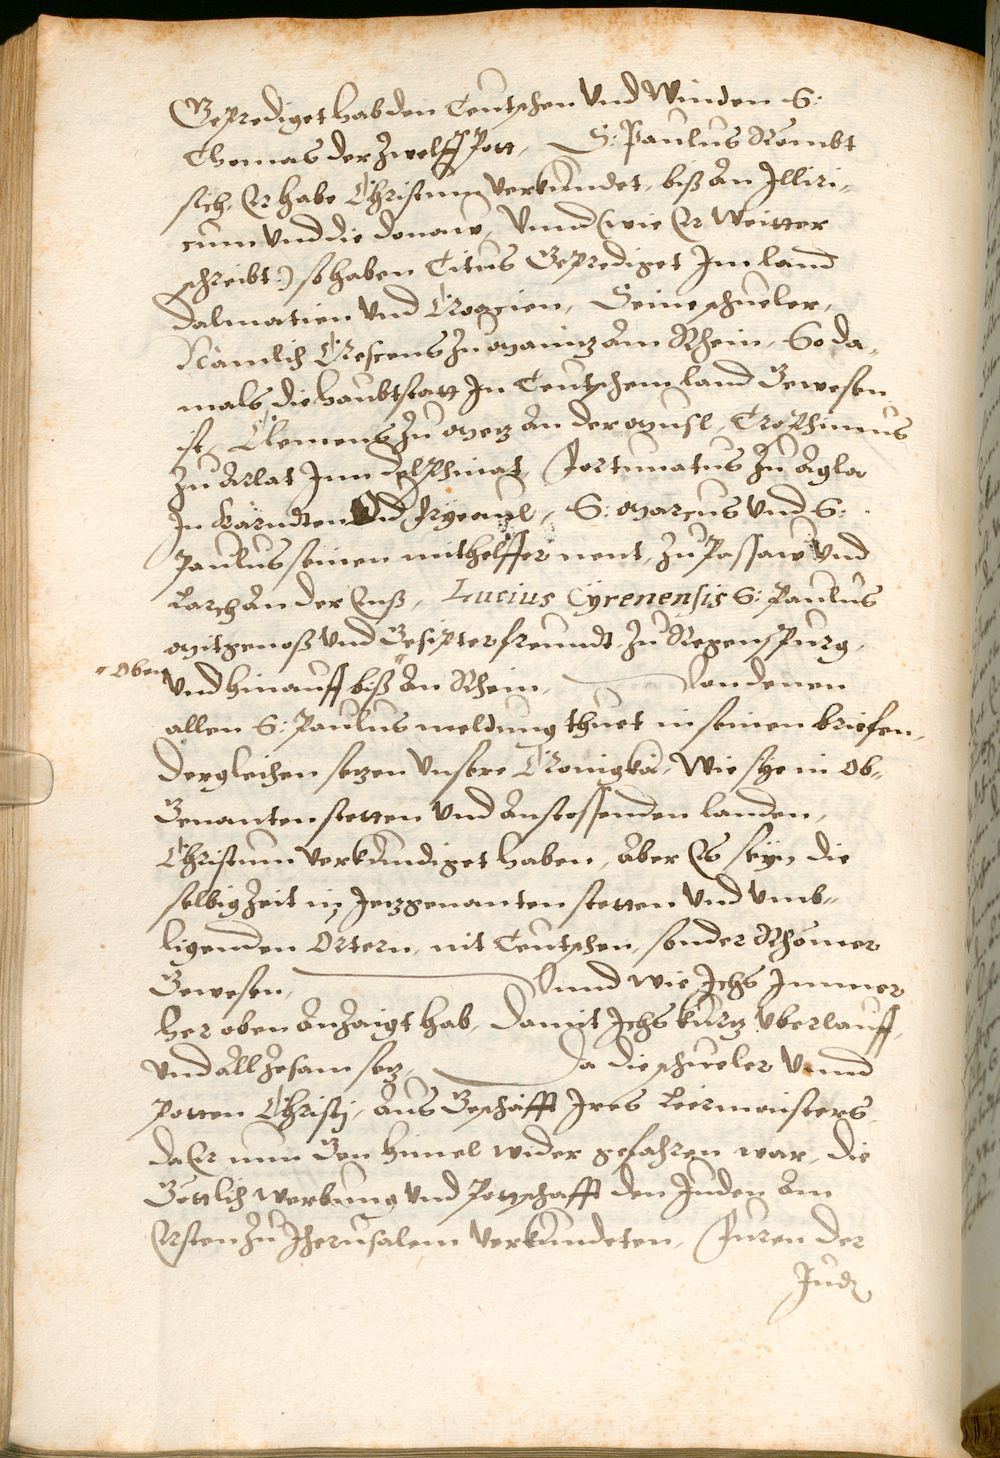 Geprediget hab den Teutschen Und Winden S:
Thomas der Zwelffpott, S: Paulus Rombt
sich, Er habe Christum Verkundet, biß An Illiri-
cum Vnd die Donaw, Vnnd (wie Er Weitter
schreibt:) so haben Titus Geprediget Im land
Dalmatien Und Croacien, Seine schueler,
Nämlich Crescens Zu Maintz am Rhein, So da-
mals die Haubtstatt In Teutschem land Gewesen
ist, Clemens Zu Metz An der Musl, Trophimus
Zu Arlat Inn Delphinat, Fortunatus Zu Agla
In Kärndten Vnd Frigaul, S: Marcus Vnd S:
Paulus seinen mithelffer nent, Zu Passaw Und
Larch An der Enß, Lucius Cyrenensis S: Paulus
Mitgenoß Vnd Gesipterfreundt Zu Regenspurg,
" Oben
Und hinauff biß " An Rhein, Vondenen
allen S: Paulus meldung thuet in seinen briefen,
Dergleichen setzen Unsere Cronigkä, Wie sye in Ob-
Genanten stetten Und Anstossenden landen,
Christum Verkündiget haben, Aber Es seyn die
selbig Zeit in Jetzgenanten stetten Und Vmb-
ligenden Ortern, nit Teutschen, sonder Rhömer
Gewesen, Vnnd wie Ichs Immer
her oben Anzaigt hab, Damit Ichs kurtz Vberlauff,
Und All Zesam setz, Da die schueler Vnnd
Potten Christj, Aus Geschäfft Jres Leermaisters,
Da Er nun Gen himel wider gefahren war, Die
Göttlich Werbung Und Pottschafft den Juden Am
Ersten Zu Jherusalem Verkundeten, Furen der
Jud